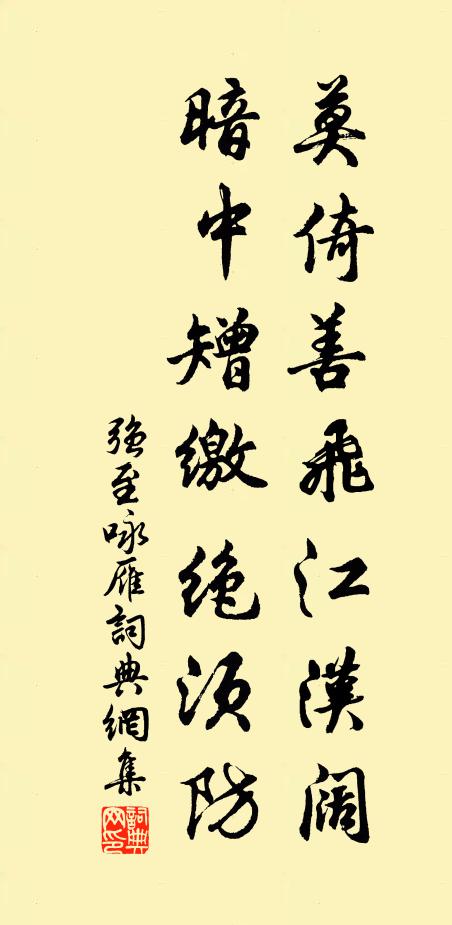 莫倚善飛江漢闊
暗中矰繳絶須防
强至咏雁詞典網集
詞典網印